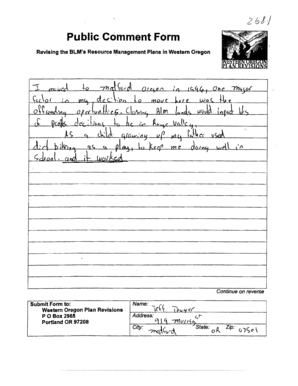 2681
Public Comment Form
Revising the BLM's Resource Management Plans in Western Oregon
WESTERN OREGON
PLAN REVISIONS
I moved to medford oregon in 1996, one major
factor in my decition to move here was the
offroading oportunities. Closing Blm lands would inpact lots
of people decitions to be in Rouge Valley.
AS a child growing up my father used
dirt biking as a ploy, to keep me doing well in
School, and it worked
Continue on reverse
Submit Form to:
Western Oregon Plan Revisions
P O Box 2965
Portland OR 97208
Name: Jeff Thayer
Address: 919 ct
City: medford State: OR Zip: 97501